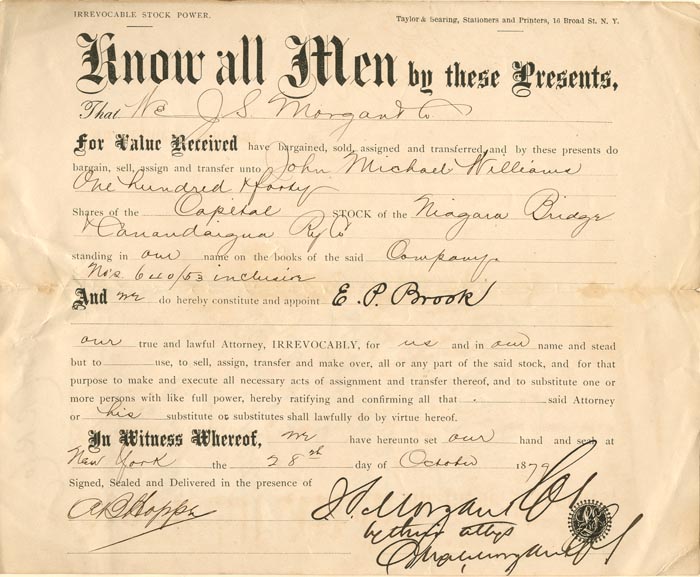 IRREVOCABLE STOCK POWER.
Taylor & Searing, Stationers and Printers, 16 Broad St. N. Y.
Know all Men by these Presents,
That We J. S. Morgan & Co
For Value Received have bargained, sold, assigned and transferred, and by these presents do
bargain, sell, assign and transfer unto John Michael Williams
One hundred & forty
Shares of the Capital STOCK of the Niagara Bridge
& Canandaigua Ry Co
standing in our name on the books of the said Company.
Nos. 640/53 inclusive
And we do hereby constitute and appoint E. P. Brook
our true and lawful Attorney, IRREVOCABLY, for us and in our name and stead
but to use, to sell, assign, transfer and make over, all or any part of the said stock, and for that
purpose to make and execute all necessary acts of assignment and transfer thereof, and to substitute one or
more persons with like full power, hereby ratifying and confirming all that said Attorney
or his substitute or substitutes shall lawfully do by virtue hereof.
In Witness Whereof, we have hereunto set our hand and seal at
New York the 28th day of October 1879
Signed, Sealed and Delivered in the presence of
J. S. Morgan & Co
by their attys